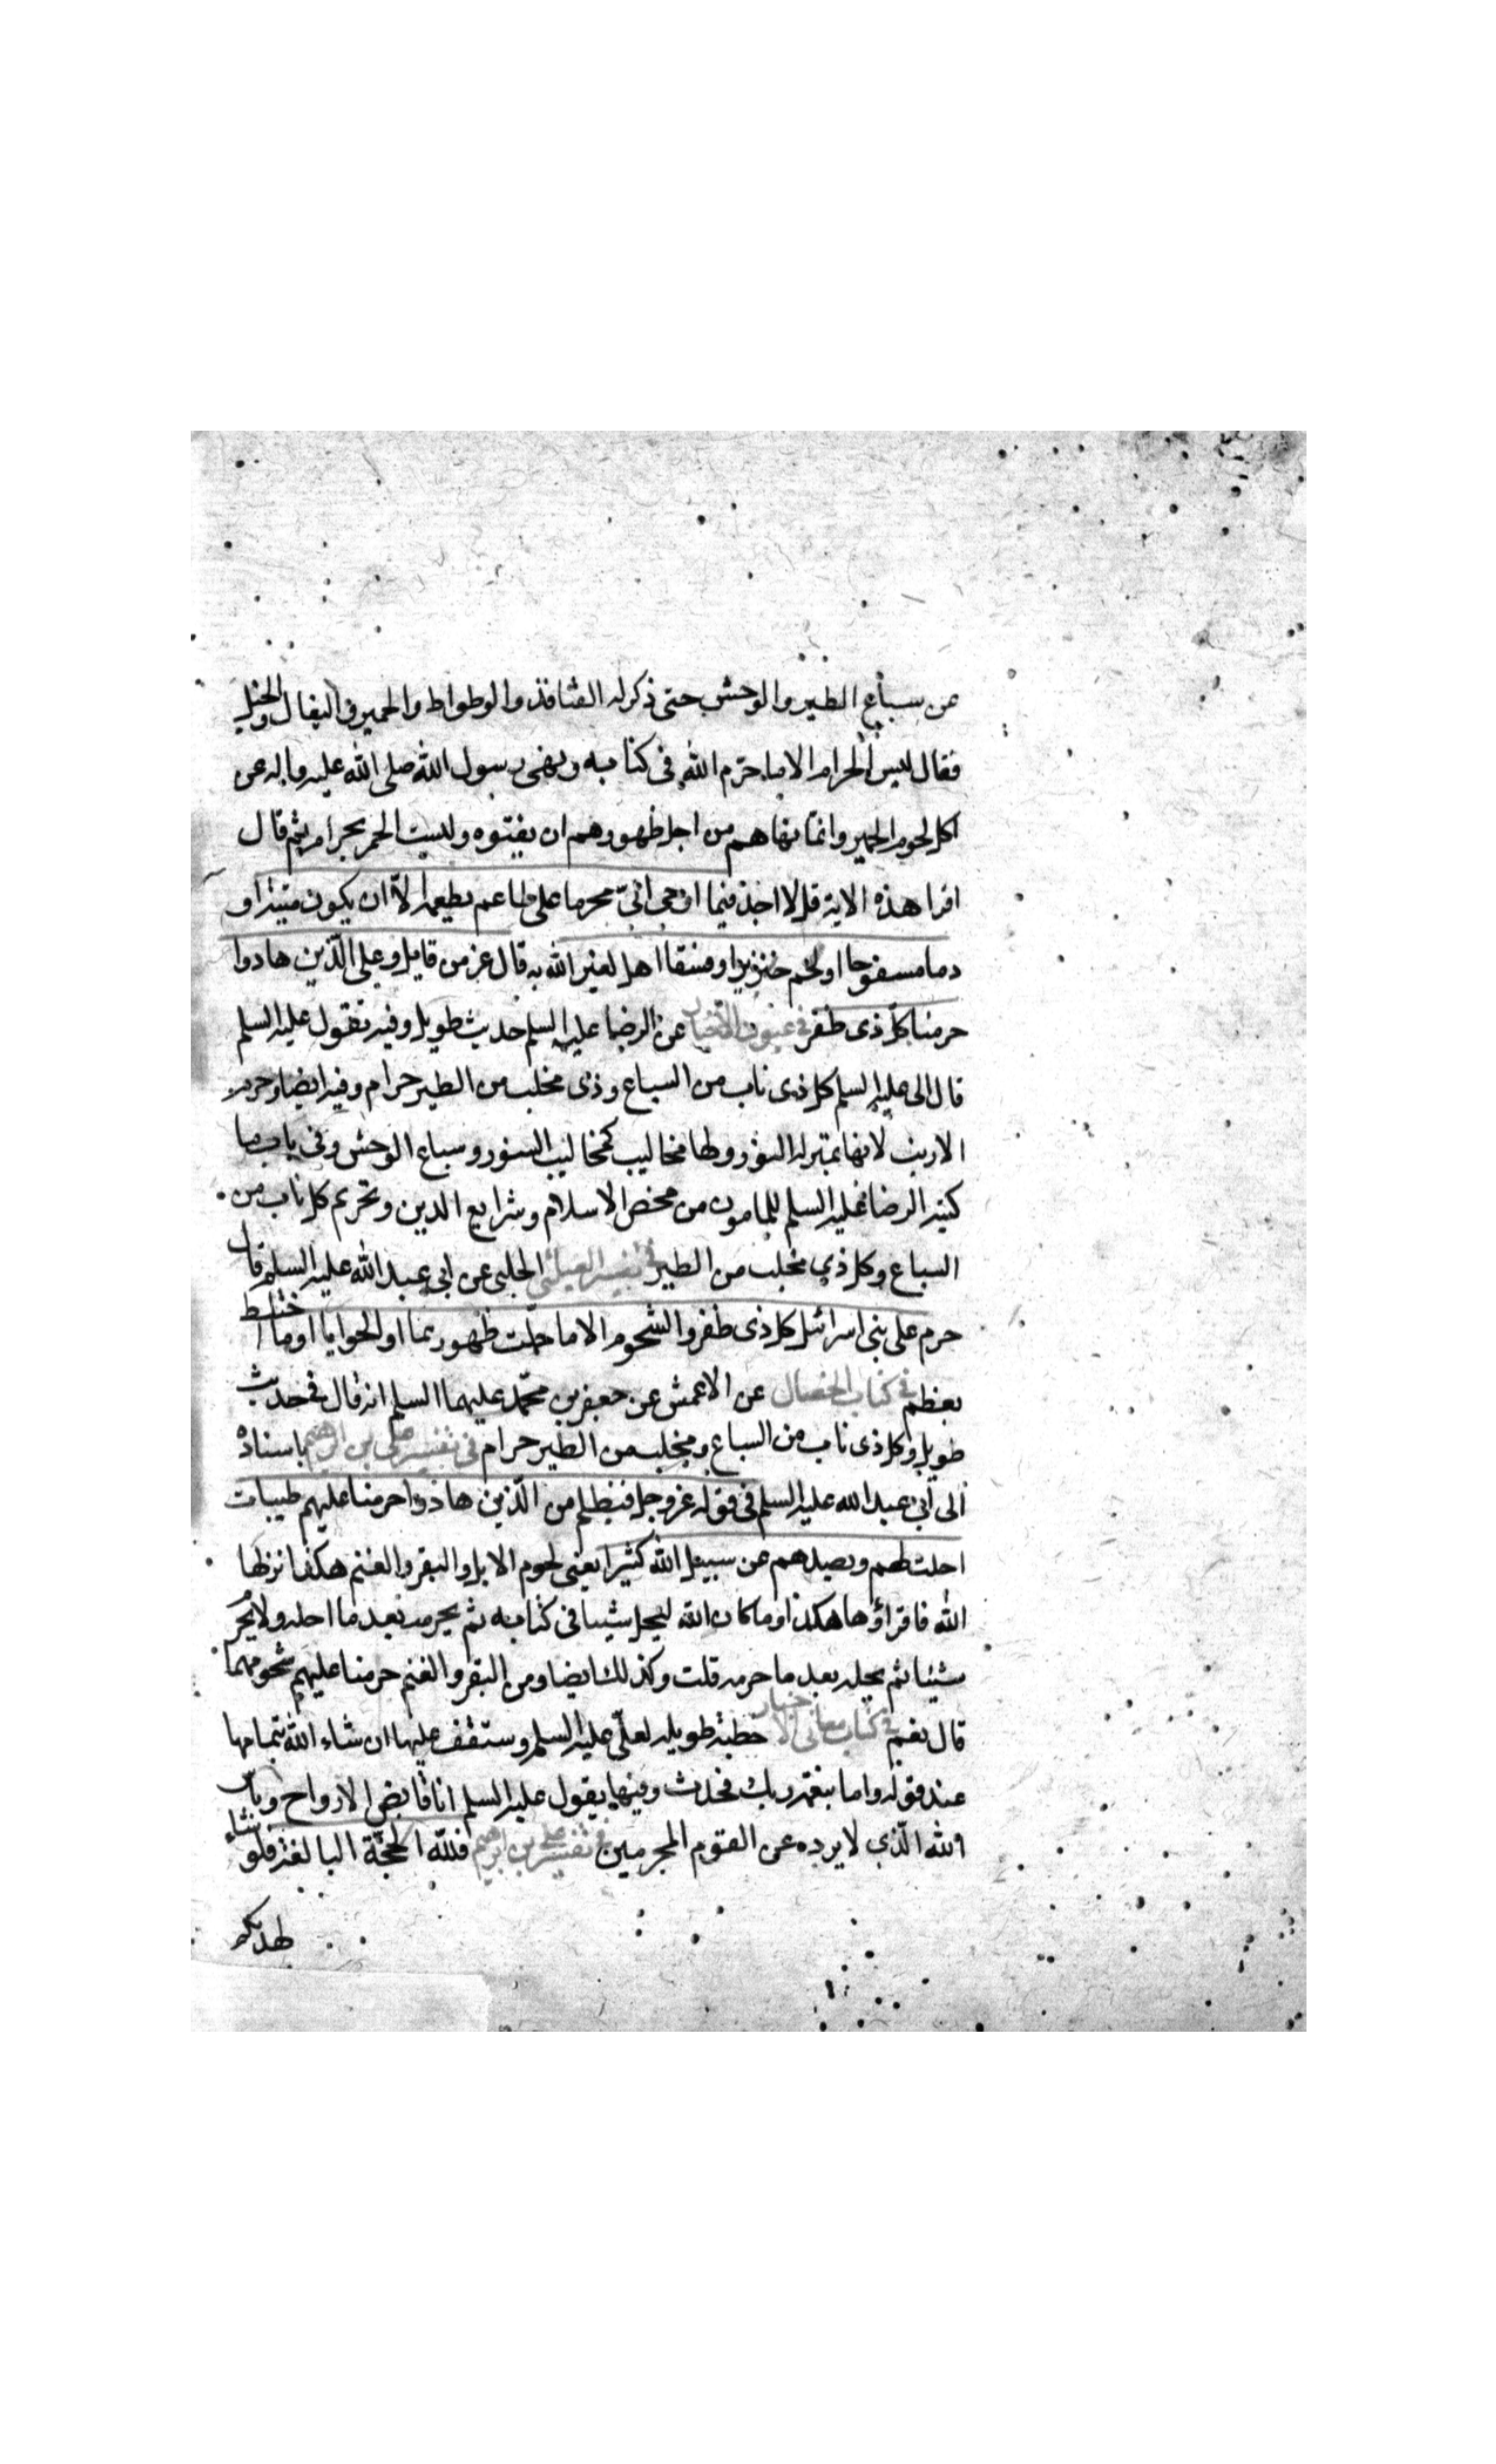 عن سباع الطير والوحش حتى ذكر له القنافذ والوطواط والحمير في البغال والخيل
فقال ليس الحرام الا ما حرم الله في كتابه ونهى رسول الله صلى الله عليه واله عن
اكل لحوم الحمير وانما نهاهم من اجل ظهورهم ان يفنوه وليست الحمر بحرام ثم قال
اقرا هذه الاية قل لا اجد فيما اوحي اليّ محرما على طاعم يطعمه الاّ ان يكون ميتة او
دما مسفوحا او لحم خنزير او فسقا اهل لغير الله به قال عز من قايل وعلى الّذين هادوا
حرمنا كل ذى ظفر في عيون الاخبار عن الرضا عليه السلم حديث طويل وفيه تقول عليه السلم
قال الى عليه السلم كل ذى ناب من السباع وذى مخلب من الطير حرام وفيه ايضا وحرم
الارنب لانها بمنزلة السنور ولها مخاليب كمخاليب السنور وسباع الوحش وفى باب ما
كتبه الرضا عليه السلم للمامون من محض الاسلام وشرايع الدين وتحريم كل ناب من
السباع وكل ذي مخلب من الطير في تفسير العياشي الحلبى عن ابى عبد الله عليه السلم قال
حرم على بنى اسرائيل كل ذى ظفر والشحوم الا ما حملت ظهورهما او الحوايا او ما اختلط
بعظم في كتاب الخصال عن الاعمش عن جعفر بن محمّد عليهما السلم انه قال في حديث
طويل وكل ذى ناب من السباع ومخلب من الطير حرام في تفسير على بن ابرهيم باسناده
الى ابى عبد الله عليه السلم في قوله عز وجل فبظلم من الّذين هادوا حرمنا عليهم طيبات
احلت لهم وبصدهم عن سبيل الله كثيرا يعنى لحوم الابل والبقر والغنم هكذا انزلها
الله فاقراؤها هكذا وما كان الله ليحل شيبا في كتابه ثم يحرمه بعد ما احله ولا يحرم
شيئا ثم يحله بعد ما حرمه قلت وكذلك ايضا ومن البقر والغنم حرمنا عليهم شحومهما
قال نعم في كتاب معانى الاخبار خطبة طويله لعلى عليه السلم وستقف عليها ان شاء الله بتمامها
عند قوله واما بنعمة ربك فحدث وفيها يقول عليه السلم انا قابض الارواح وباس
الله الّذي لا يرده عن القوم المجرمين في تفسير على بن ابرهيم فللّه الحجّة البالغة فلو شاء
لهديكم